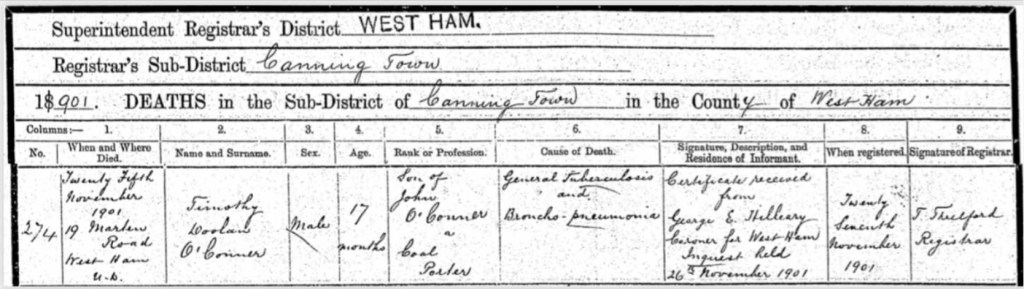 Superintendent Registrar's District WEST HAM.
Registrar's Sub-District Canning Town
1901. DEATHS in the Sub-District of Canning Town in the County of West Ham
Columns:— 1. 2. 3. 4. 5. 6. 7. 8. 9.
No. When and Where Died. Name and Surname. Sex. Age. Rank or Profession. Cause of Death. Signature, Description, and Residence of Informant. When registered. Signature of Registrar.
274
Twenty Fifth
November
1901
19 Marten
Road
West Ham
U.D.
Timothy
O'Conner
Male
17
months
Son of
John
O'Conner
a
Coal
Porter
General Tuberculosis
and
Broncho-pneumonia
Certificate received
from
George E. Hilleary
Coroner for West Ham
Inquest held
26th November 1901
Twenty
Seventh
November
1901
Registrar